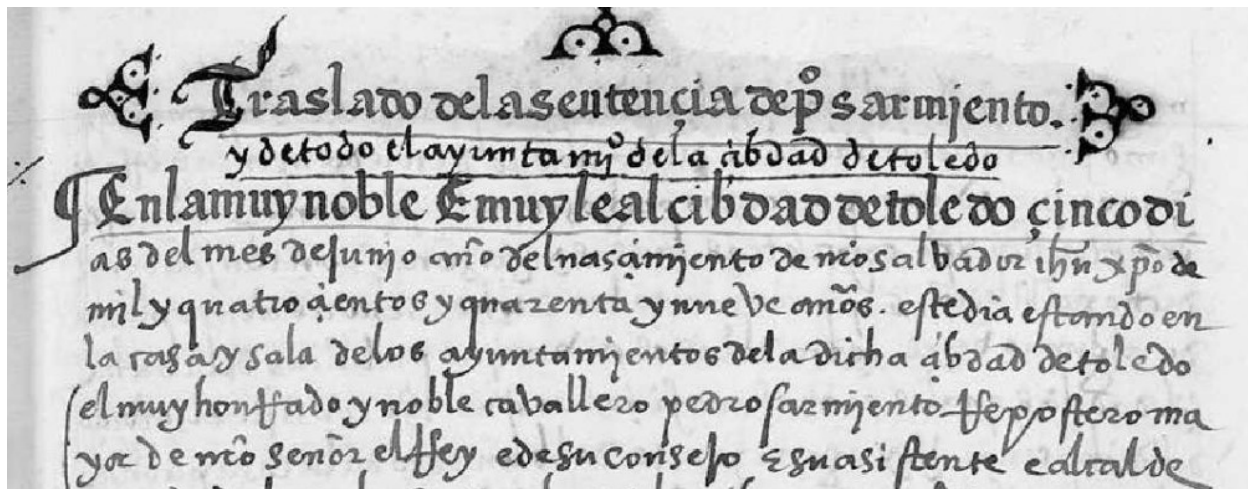 Traslado de la sentençia de pº sarmjento.
y de todo el ayuntamjº de la çibdad de toledo
¶ En la muy noble E muy leal cibdad de toledo çinco di
as del mes de junjo año del nasçimjento de nrõ salbador ihũ xpõ de
mil y quatroçientos y quarenta y nueve años. este dia estando en
la casa y sala de los ayuntamjentos de la dicha çibdad de toledo
el muy honrrado y noble cavallero pedro sarmjento rrepostero ma
yor de nrõ señor el rrey e de su consejo e su asistente e alcalde